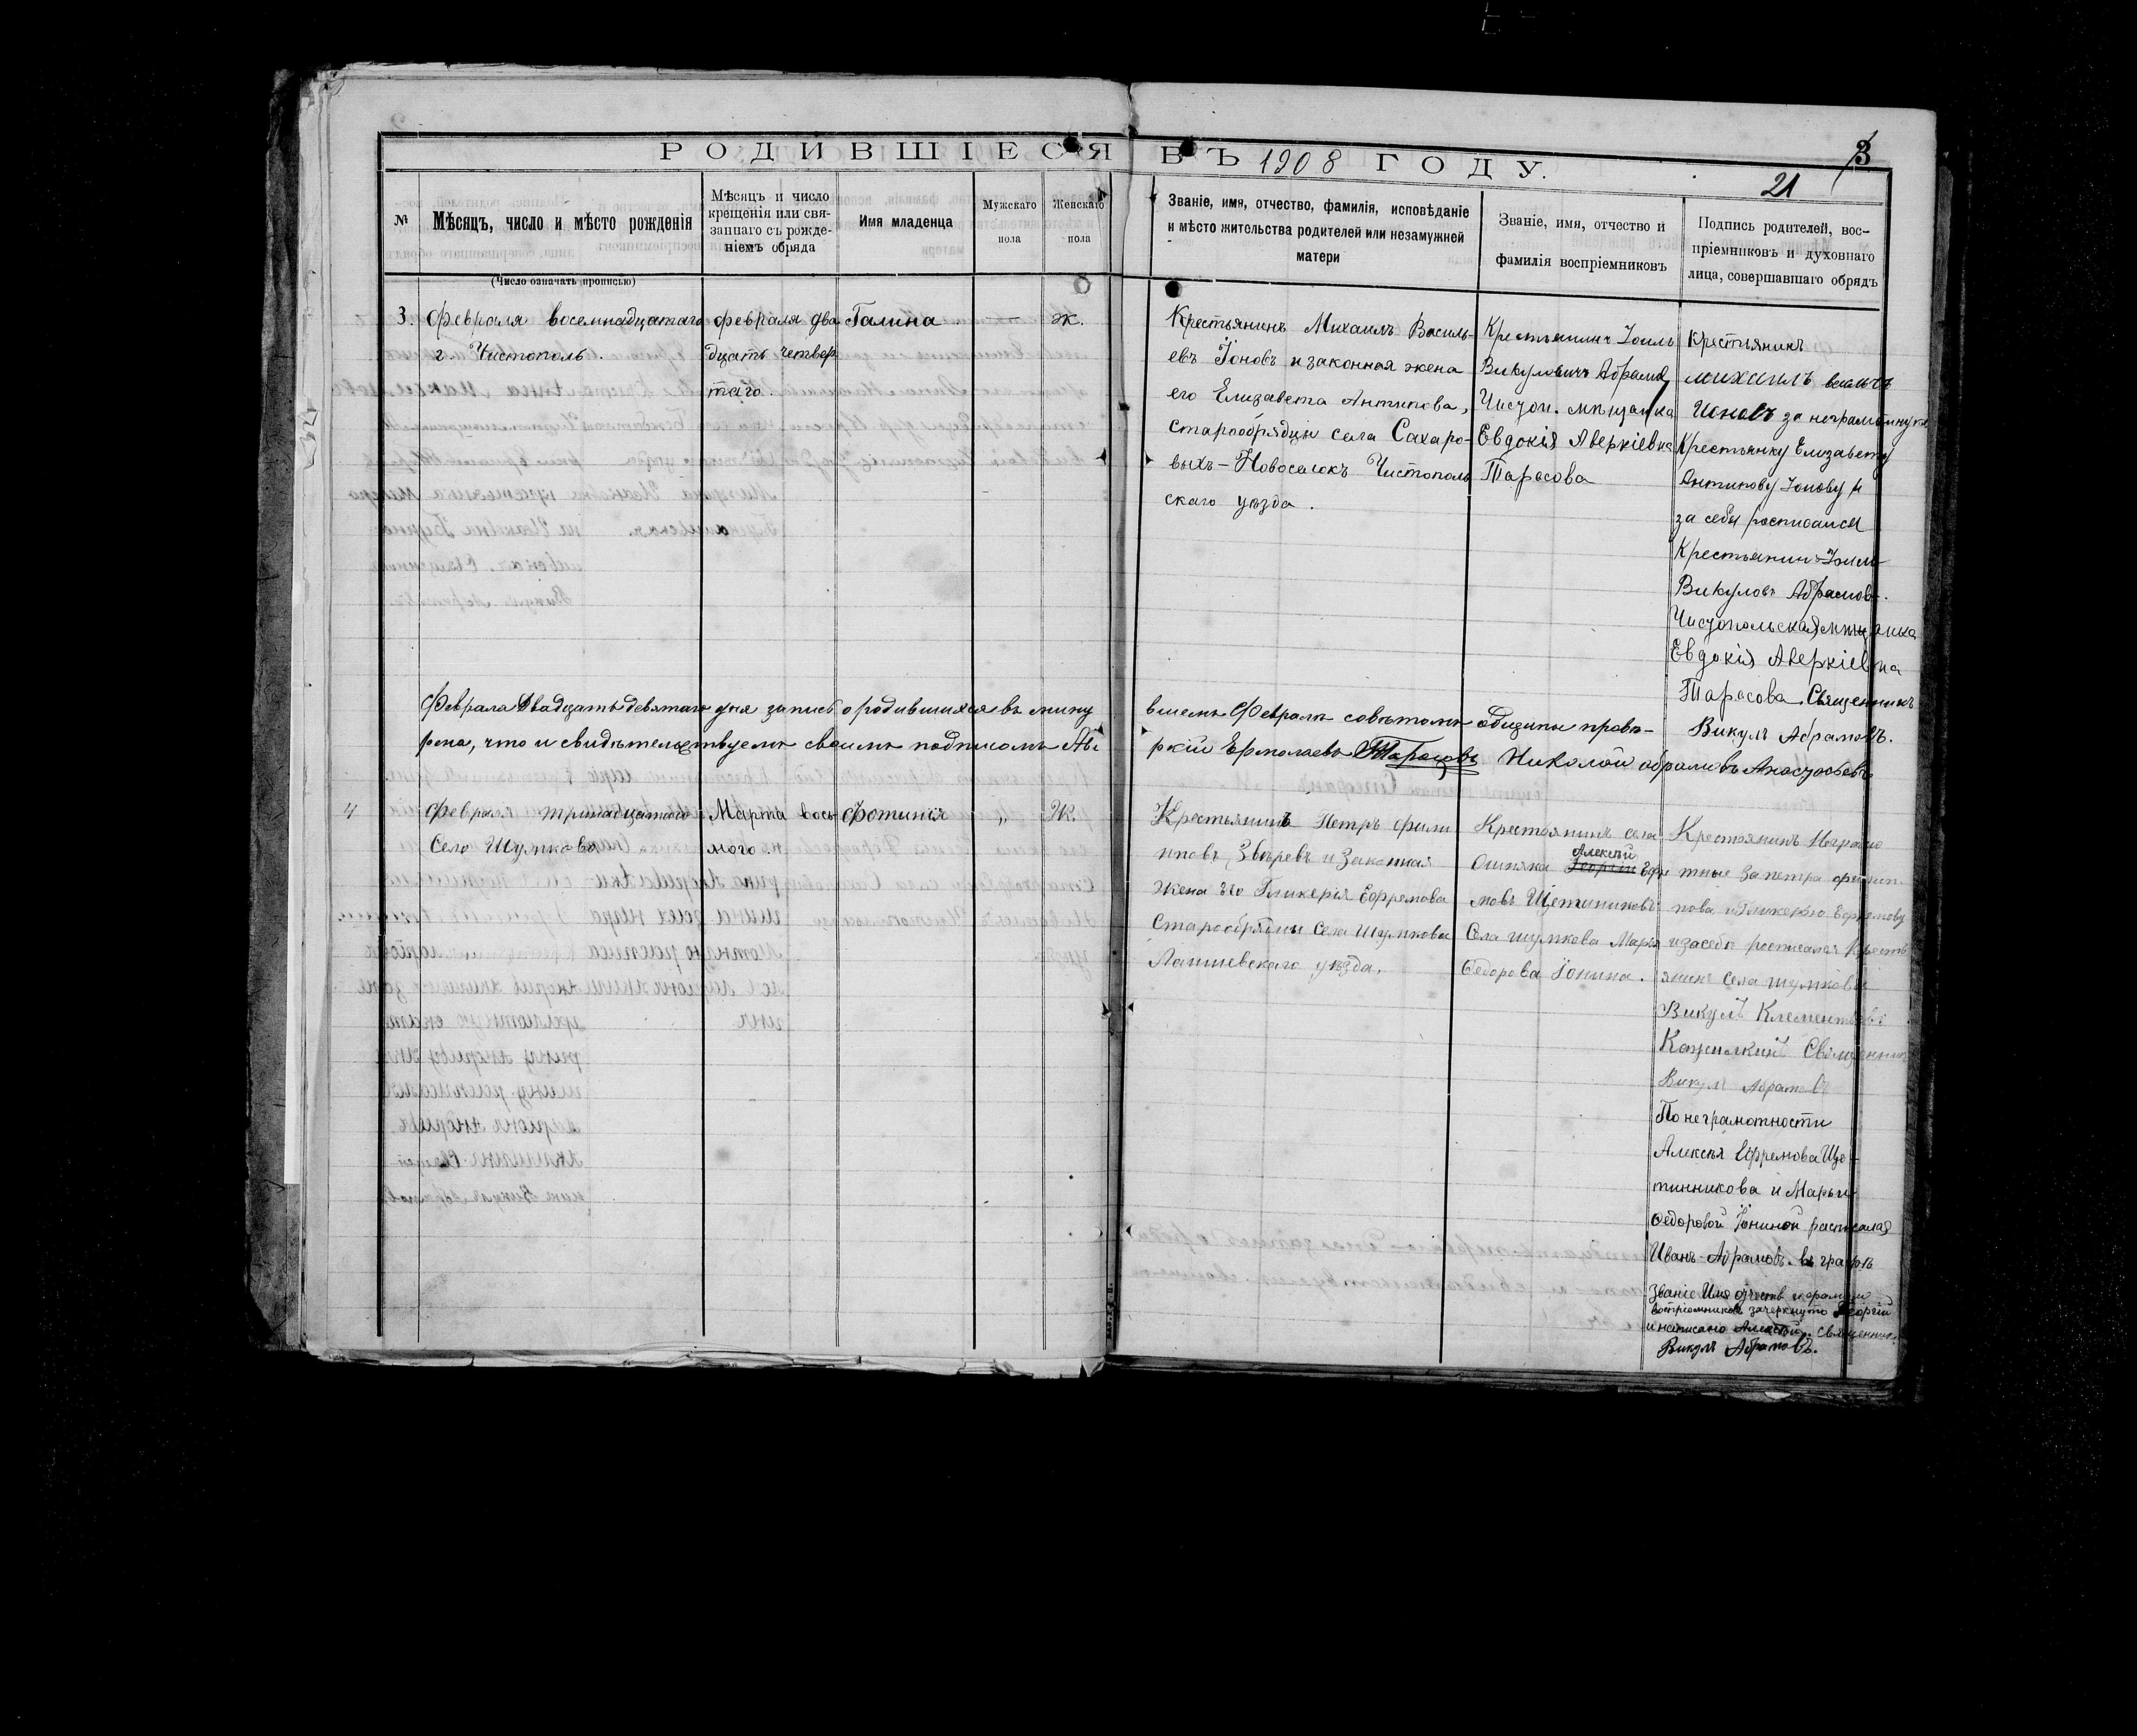 РОДИВШІЕСЯ ВЪ 1908 ГОДУ.
3
21
№
Мѣсяцъ, число и мѣсто рожденія
Мѣсяцъ и число
крещенія или свя-
заннаго съ рожде-
ніемъ обряда
Имя младенца
Мужскаго
пола
Женскаго
пола
Званіе, имя, отчество, фамилія, исповѣданіе
и мѣсто жительства родителей или незамужней
матери
Званіе, имя, отчество и
фамилія воспріемниковъ
Подпись родителей, вос-
пріемниковъ и духовнаго
лица, совершавшаго обрядъ
(Число означать прописью)
3.
Февраля восемнадцатаго
г. Чистополь.
февраля два
дцать четвер
таго.
Галина
—
ж.
Крестьянинъ Михаилъ Василь-
евъ Іоновъ и законная жена
его Елизавета Антипова,
старообрядцы села Сахаро-
выхъ-Новоселокъ Чистополь
скаго уѣзда.
Крестьянинъ Іоиль
Викуловичъ Абрамов
Чистоп. мѣщанка
Евдокія Аверкіевна
Тарасова
Крестьянинъ
михаилъ
Ионовъ за неграмотную
Крестьянку Елизавету
Антипову Іонову и
за себя росписался
Крестьянин Іоиль
Викуловъ Абрамовъ.
Чистопольская мѣщанка
Евдокія Аверкіевна
Тарасова. Священникъ
Викулъ Абрамовъ.
Февраля двадцать девятаго дня запись о родившихся въ мину
вшемъ Февралѣ совѣтомъ общины провѣ-
рена, что и свидѣтельствуемъ своимъ подписомъ Аве
ркій Ермолаевъ Тарасовъ Николай абрамовъ
4
Февраля тринадцатаго
Село Шумково
Марта вось
мого.
Фотинія
„
Ж.
Крестьянинъ Петръ Фили
пповъ Звѣревъ и Законная
жена его Гликерія Ефремова
Старообрядцы села Шумкова
Лаишевскаго уѣзда.
Крестьянинъ села
Алексѣй
Ошняка Георгій Ефре
мовъ Щетинниковъ
Села шумкова Марья
Федорова Іонина.
Крестьянинъ Неграмо
тные за петра филип
пова и Гликерью Ефремову
и за себя росписался Кресть
янинъ села шумкова
Викулъ Клементьевъ
Священник
Викулъ Абрамовъ
По неграмотности
Алексѣя Ефремова Ще-
тинникова и Марьи
Федоровой Іониной расписался
Иванъ Абрамовъ. въ графѣ
Званіе Имя отчеств и фамили
воспріемниковъ зачеркнуто Георгій
и написано Алексѣй. Священник
Викулъ Абрамовъ.